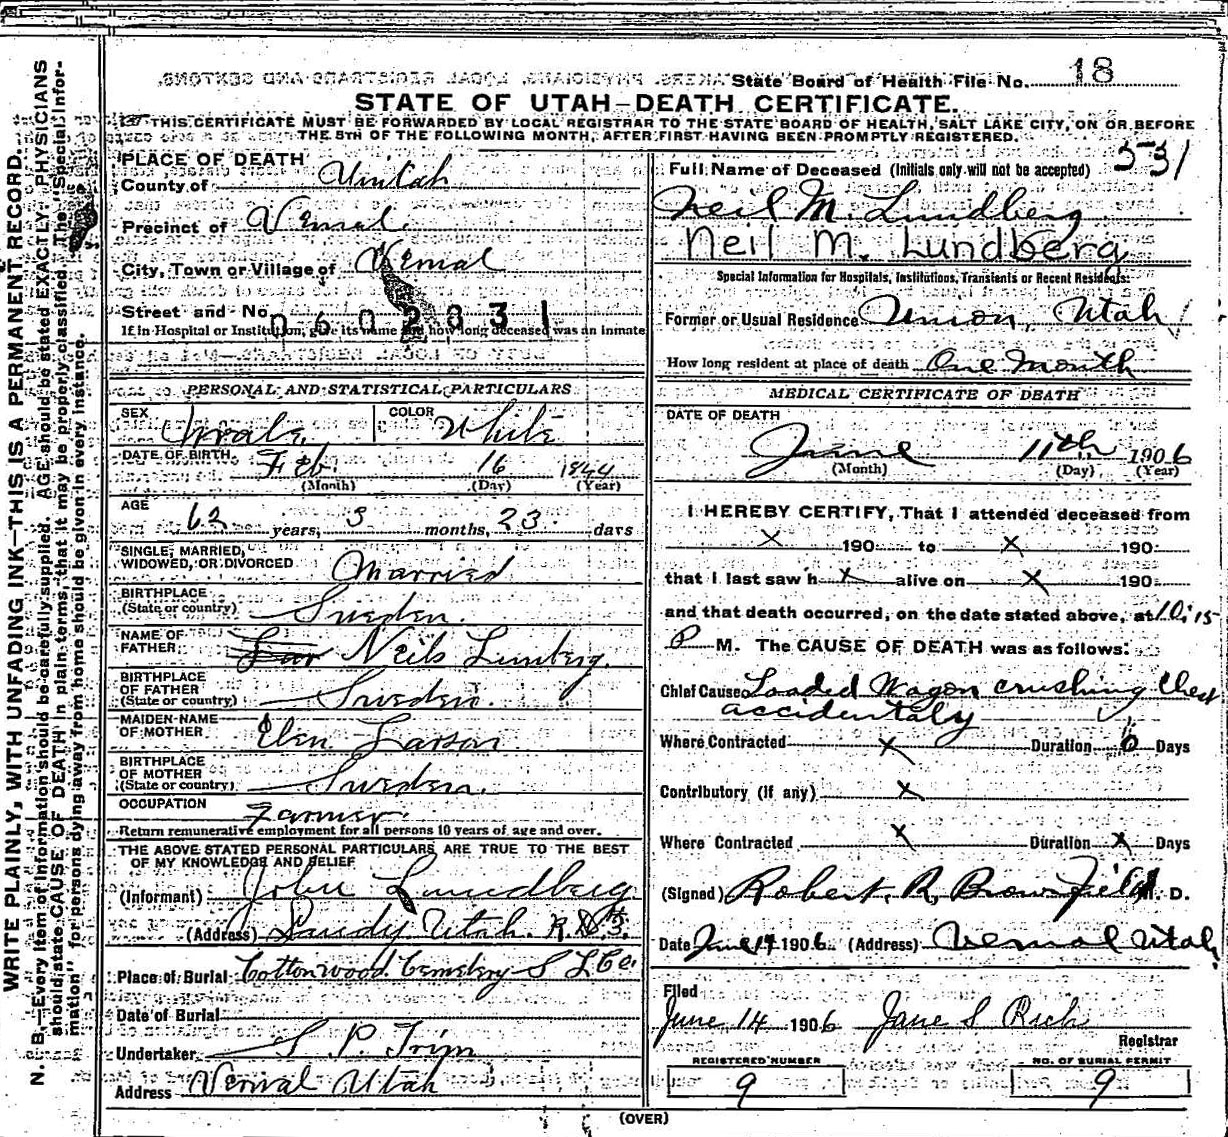 State Board of Health File No. 18
STATE OF UTAH—DEATH CERTIFICATE.
THIS CERTIFICATE MUST BE FORWARDED BY LOCAL REGISTRAR TO THE STATE BOARD OF HEALTH, SALT LAKE CITY, ON OR BEFORE
THE 5TH OF THE FOLLOWING MONTH, AFTER FIRST HAVING BEEN PROMPTLY REGISTERED.
WRITE PLAINLY, WITH UNFADING INK—THIS IS A PERMANENT RECORD.
N. B.—Every item of information should be carefully supplied. AGE should be stated EXACTLY. PHYSICIANS
should state CAUSE OF DEATH in plain terms, that it may be properly classified. The "Special Infor-
mation" for persons dying away from home should be given in every instance.
PLACE OF DEATH
County of Uintah
Precinct of Vernal
City, Town or Village of Vernal
Street and No.
0602831
If in Hospital or Institution, give its name and how long deceased was an inmate
PERSONAL AND STATISTICAL PARTICULARS
SEX Male COLOR White
DATE OF BIRTH Feb. 16 1844
(Month) (Day) (Year)
AGE
62 years, 3 months, 23 days
SINGLE, MARRIED,
WIDOWED, OR DIVORCED Married
BIRTHPLACE
(State or country) Sweden.
NAME OF
FATHER Neils Lunberg.
BIRTHPLACE
OF FATHER
(State or country) Sweden.
MAIDEN NAME
OF MOTHER Elen Larson
BIRTHPLACE
OF MOTHER
(State or country) Sweden.
OCCUPATION Farmer.
Return remunerative employment for all persons 10 years of age and over.
THE ABOVE STATED PERSONAL PARTICULARS ARE TRUE TO THE BEST
OF MY KNOWLEDGE AND BELIEF
(Informant) John Lundberg
(Address) Sandy Utah. R.D. #3.
Place of Burial Cottonwood Cemetery S L Co.
Date of Burial
Undertaker S P Trim
Address Vernal Utah
531
Full Name of Deceased (Initials only will not be accepted)
Neil M. Lundberg
Neil M. Lundberg
Special Information for Hospitals, Institutions, Transients or Recent Residents:
Former or Usual Residence Union, Utah
How long resident at place of death One Month
MEDICAL CERTIFICATE OF DEATH
DATE OF DEATH
June 11th 1906
(Month) (Day) (Year)
I HEREBY CERTIFY, That I attended deceased from
X 190 to X 190
that I last saw h X alive on X 190
and that death occurred, on the date stated above, at 10:15
P M. The CAUSE OF DEATH was as follows:
Chief Cause Loaded Wagon crushing Chest
accidentaly
Where Contracted X Duration 0 Days
Contributory (if any) X
Where Contracted X Duration X Days
(Signed) Robert. R. Brownfield M. D.
Date June 14 1906 (Address) Vernal Utah
Filed
June 14 1906 Jane S Rich
Registrar
REGISTERED NUMBER
9
NO. OF BURIAL PERMIT
9
(OVER)